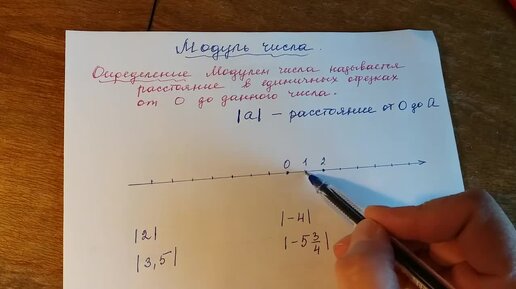 Модуль числа.
Определение Модулем числа называется
расстояние в единичных отрезках
от 0 до данного числа.
|a| – расстояние от 0 до А
0 1 2
|2| |-4|
|3,5| |-5 3/4|